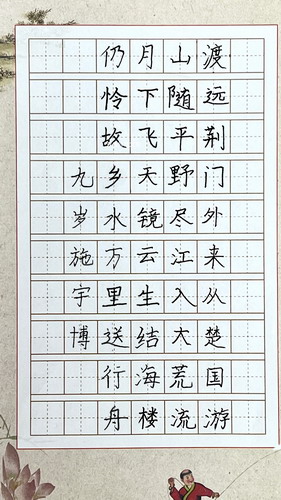 渡远荆门外来从楚国游
山随平野尽江入大荒流
月下飞天镜云生结海楼
仍怜故乡水万里送行舟
九岁施宇博